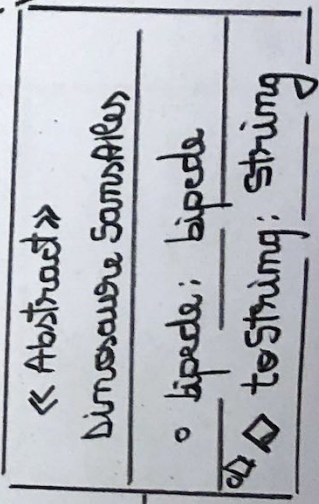 « Abstract »
Dinosaure SansAiles
○ bipede : bipede
◇ toString : String